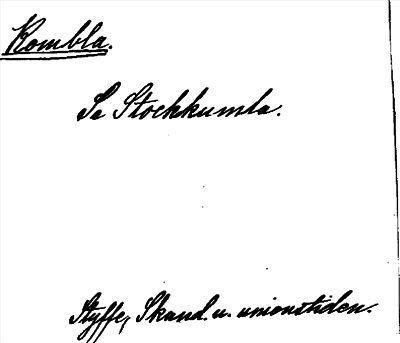 Kombla.
Se Stockkumla.
Styffe, Skand. u. unionstiden.